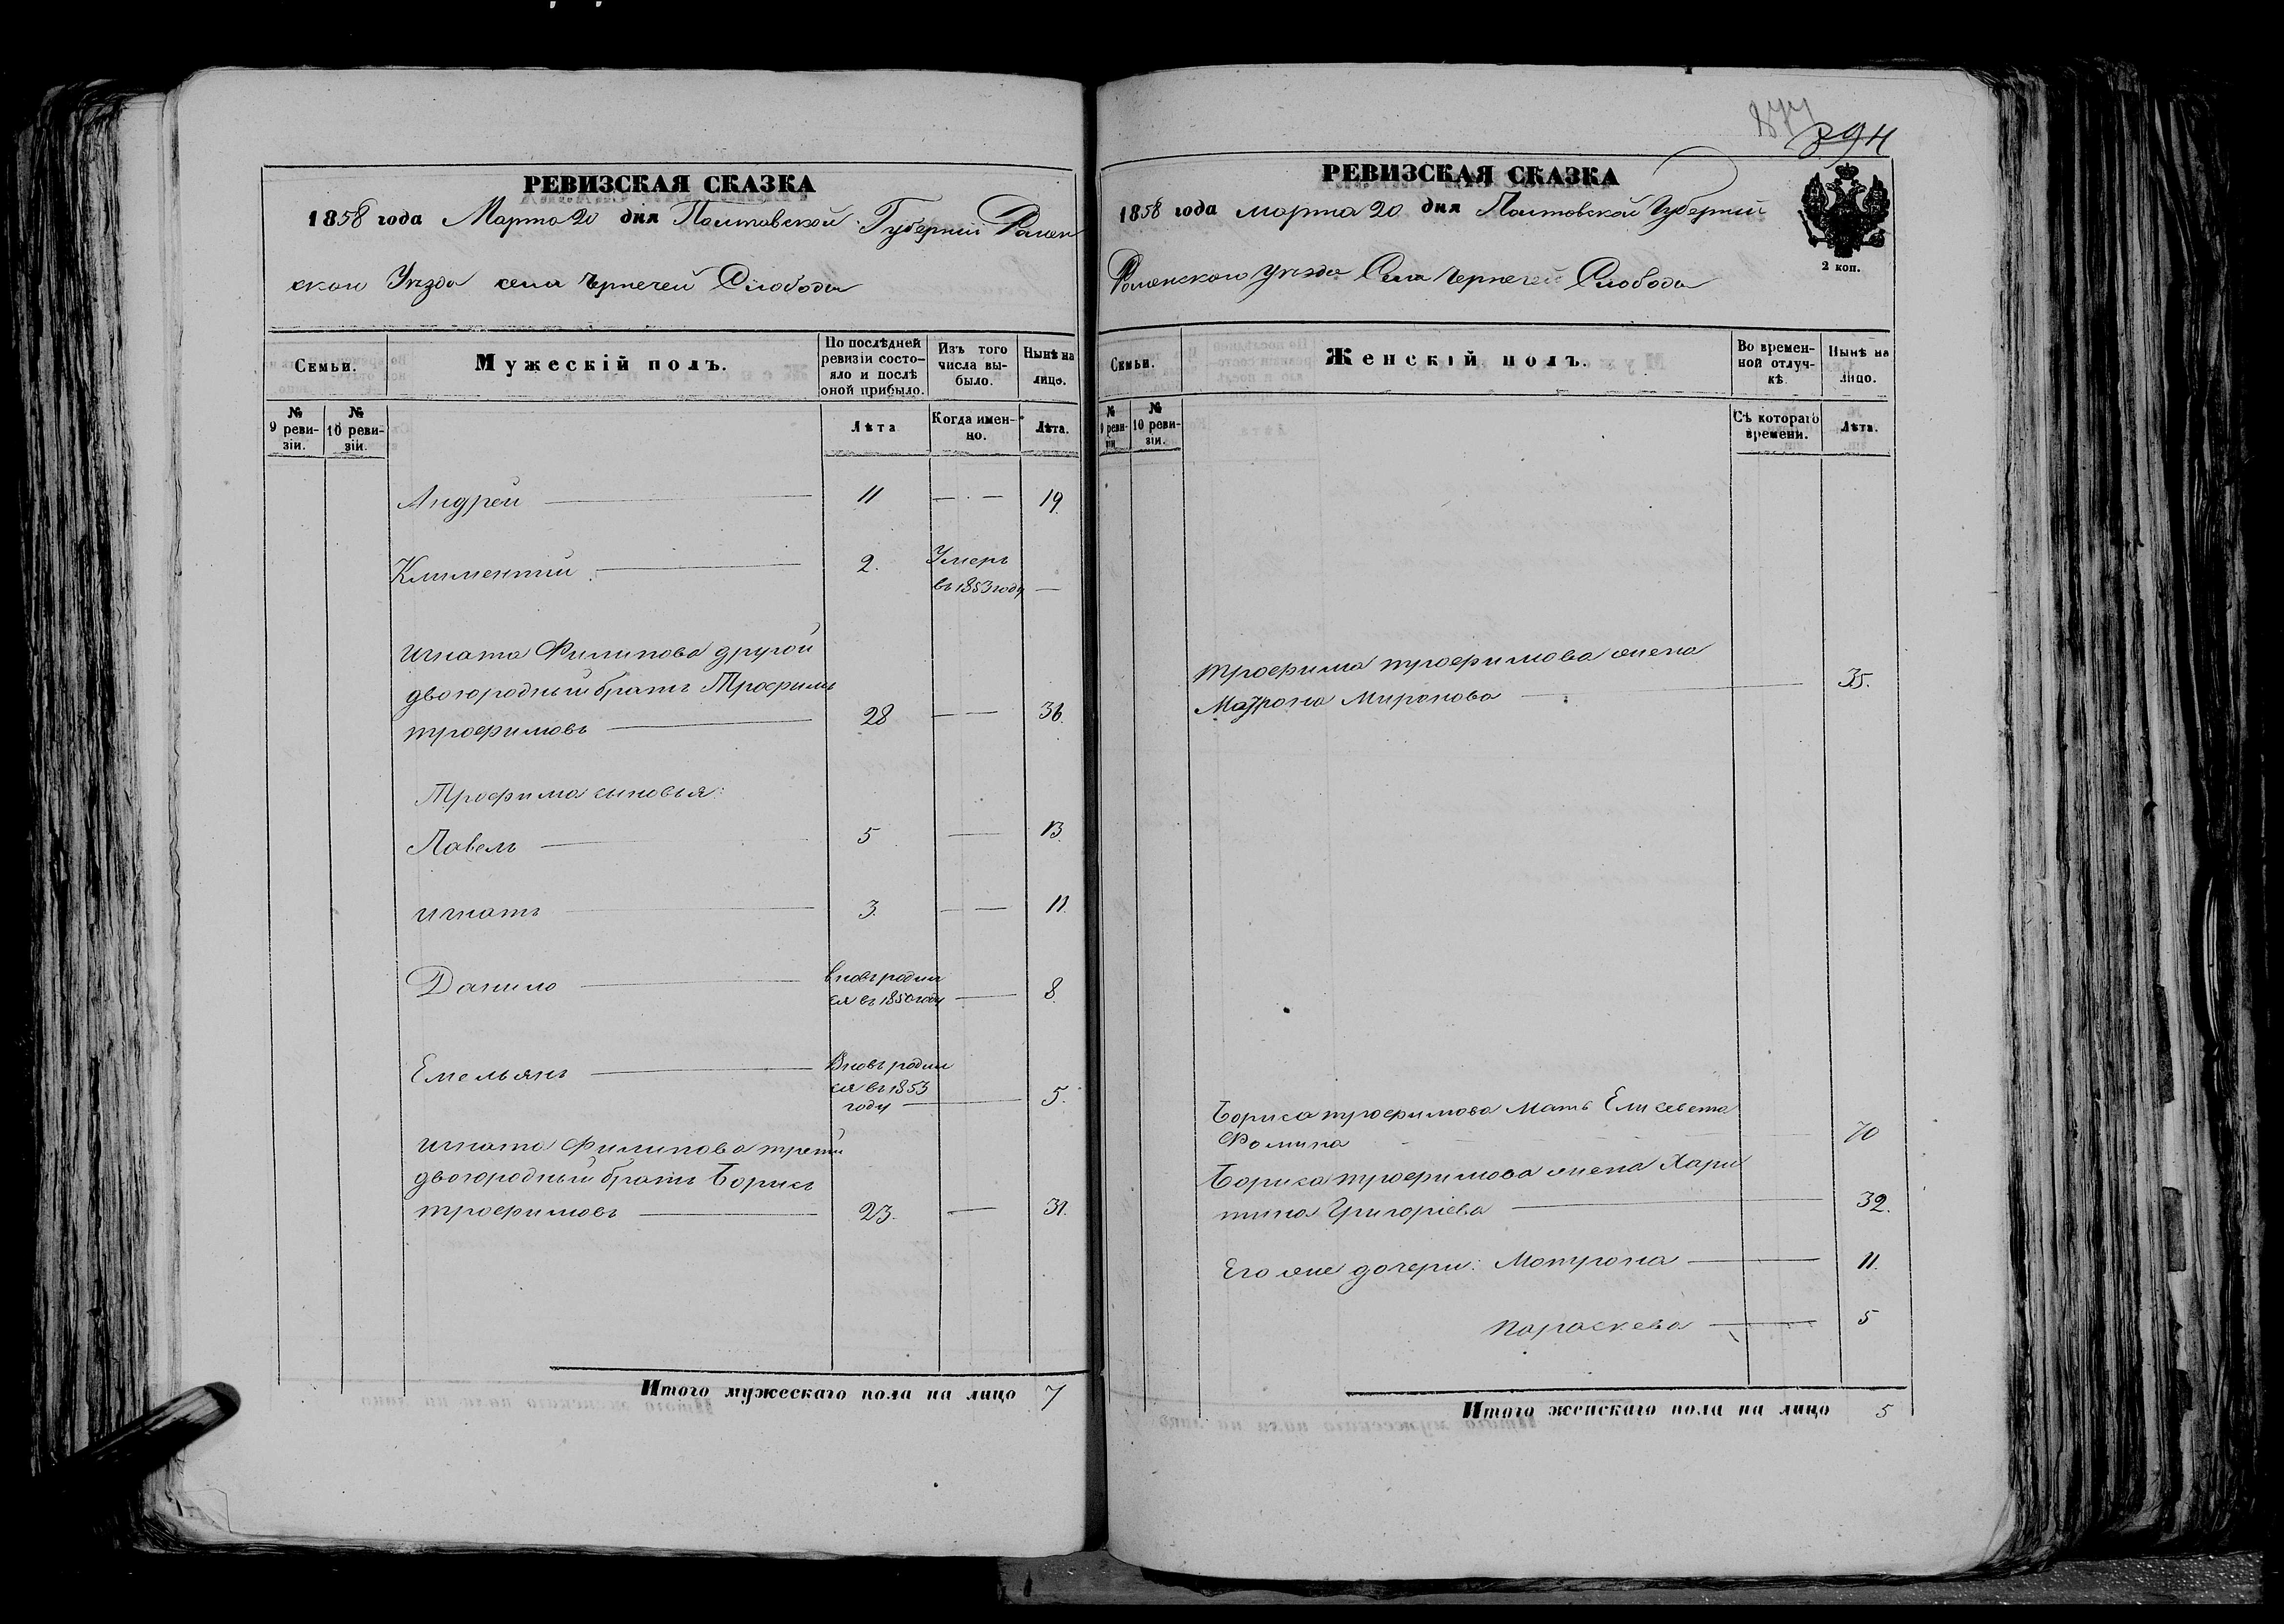 РЕВИЗСКАЯ СКАЗКА
1858 года Марта 20 дня Полтавской Губернии Ромен
скаго Уѣзда села Чернечей Слободы
Семьи.
Мужескій полъ.
По послѣдней ревизіи состояло и послѣ оной прибыло.
Изъ того числа выбыло.
Нынѣ на лицо.
№ 9 ревизіи.
№ 10 ревизіи.
Лѣта
Когда именно.
Лѣта.
Андрей 11 19
Климентий 2. Умеръ
въ 1853 году
Игната Филипова другой
двоюродный братъ Трофимъ
трофимовъ 28 36.
Трофима сыновья:
Павелъ 5 13.
игнатъ 3. 11.
Данило вновь родил
ся въ 1850 году 8.
Емельянъ Вновь родил
ся въ 1853
году 5.
игната Филипова трети
двоюродный братъ Борисъ
трофимовъ 23. 31.
Итого мужескаго пола на лицо 7
394
РЕВИЗСКАЯ СКАЗКА
1858 года марта 20 дня Полтовской Губернии
Роменскаго уѣзда Села Чернечей Слободы
2 коп.
Семьи.
Женскій полъ.
Во временной отлучкѣ.
Нынѣ на лицо.
№ 9 ревизіи
№ 10 ревизіи.
Съ котораго времени.
Лѣта.
трофима трофимова жена
Матрона Миронова 35.
Бориса трофимова Мать Елисавета
Фомина 70
Бориса трофимова жена Хари
тина Григоріева 32.
Его же дочери: Мотрона 11.
параскева 5
Итого женскаго пола на лицо 5